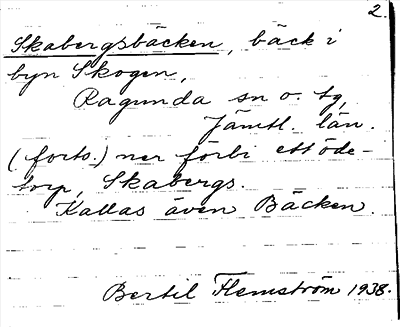 2.
Skabergsbäcken, bäck i
byn Skogen,
Ragunda sn o. tg,
Jämtl. län.
(forts.) ner förbi ett öde-
torp, Skabergs.
Kallas även Bäcken.
Bertil Flemström 1938.